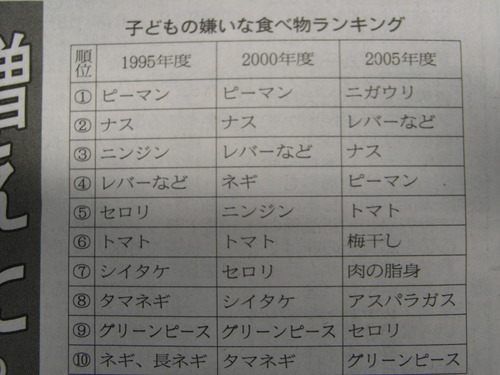 子どもの嫌いな食べ物ランキング
順位 1995年度 2000年度 2005年度
① ピーマン ピーマン ニガウリ
② ナス ナス レバーなど
③ ニンジン レバーなど ナス
④ レバーなど ネギ ピーマン
⑤ セロリ ニンジン トマト
⑥ トマト トマト 梅干し
⑦ シイタケ セロリ 肉の脂身
⑧ タマネギ シイタケ アスパラガス
⑨ グリーンピース グリーンピース セロリ
⑩ ネギ、長ネギ タマネギ グリーンピース
増えに